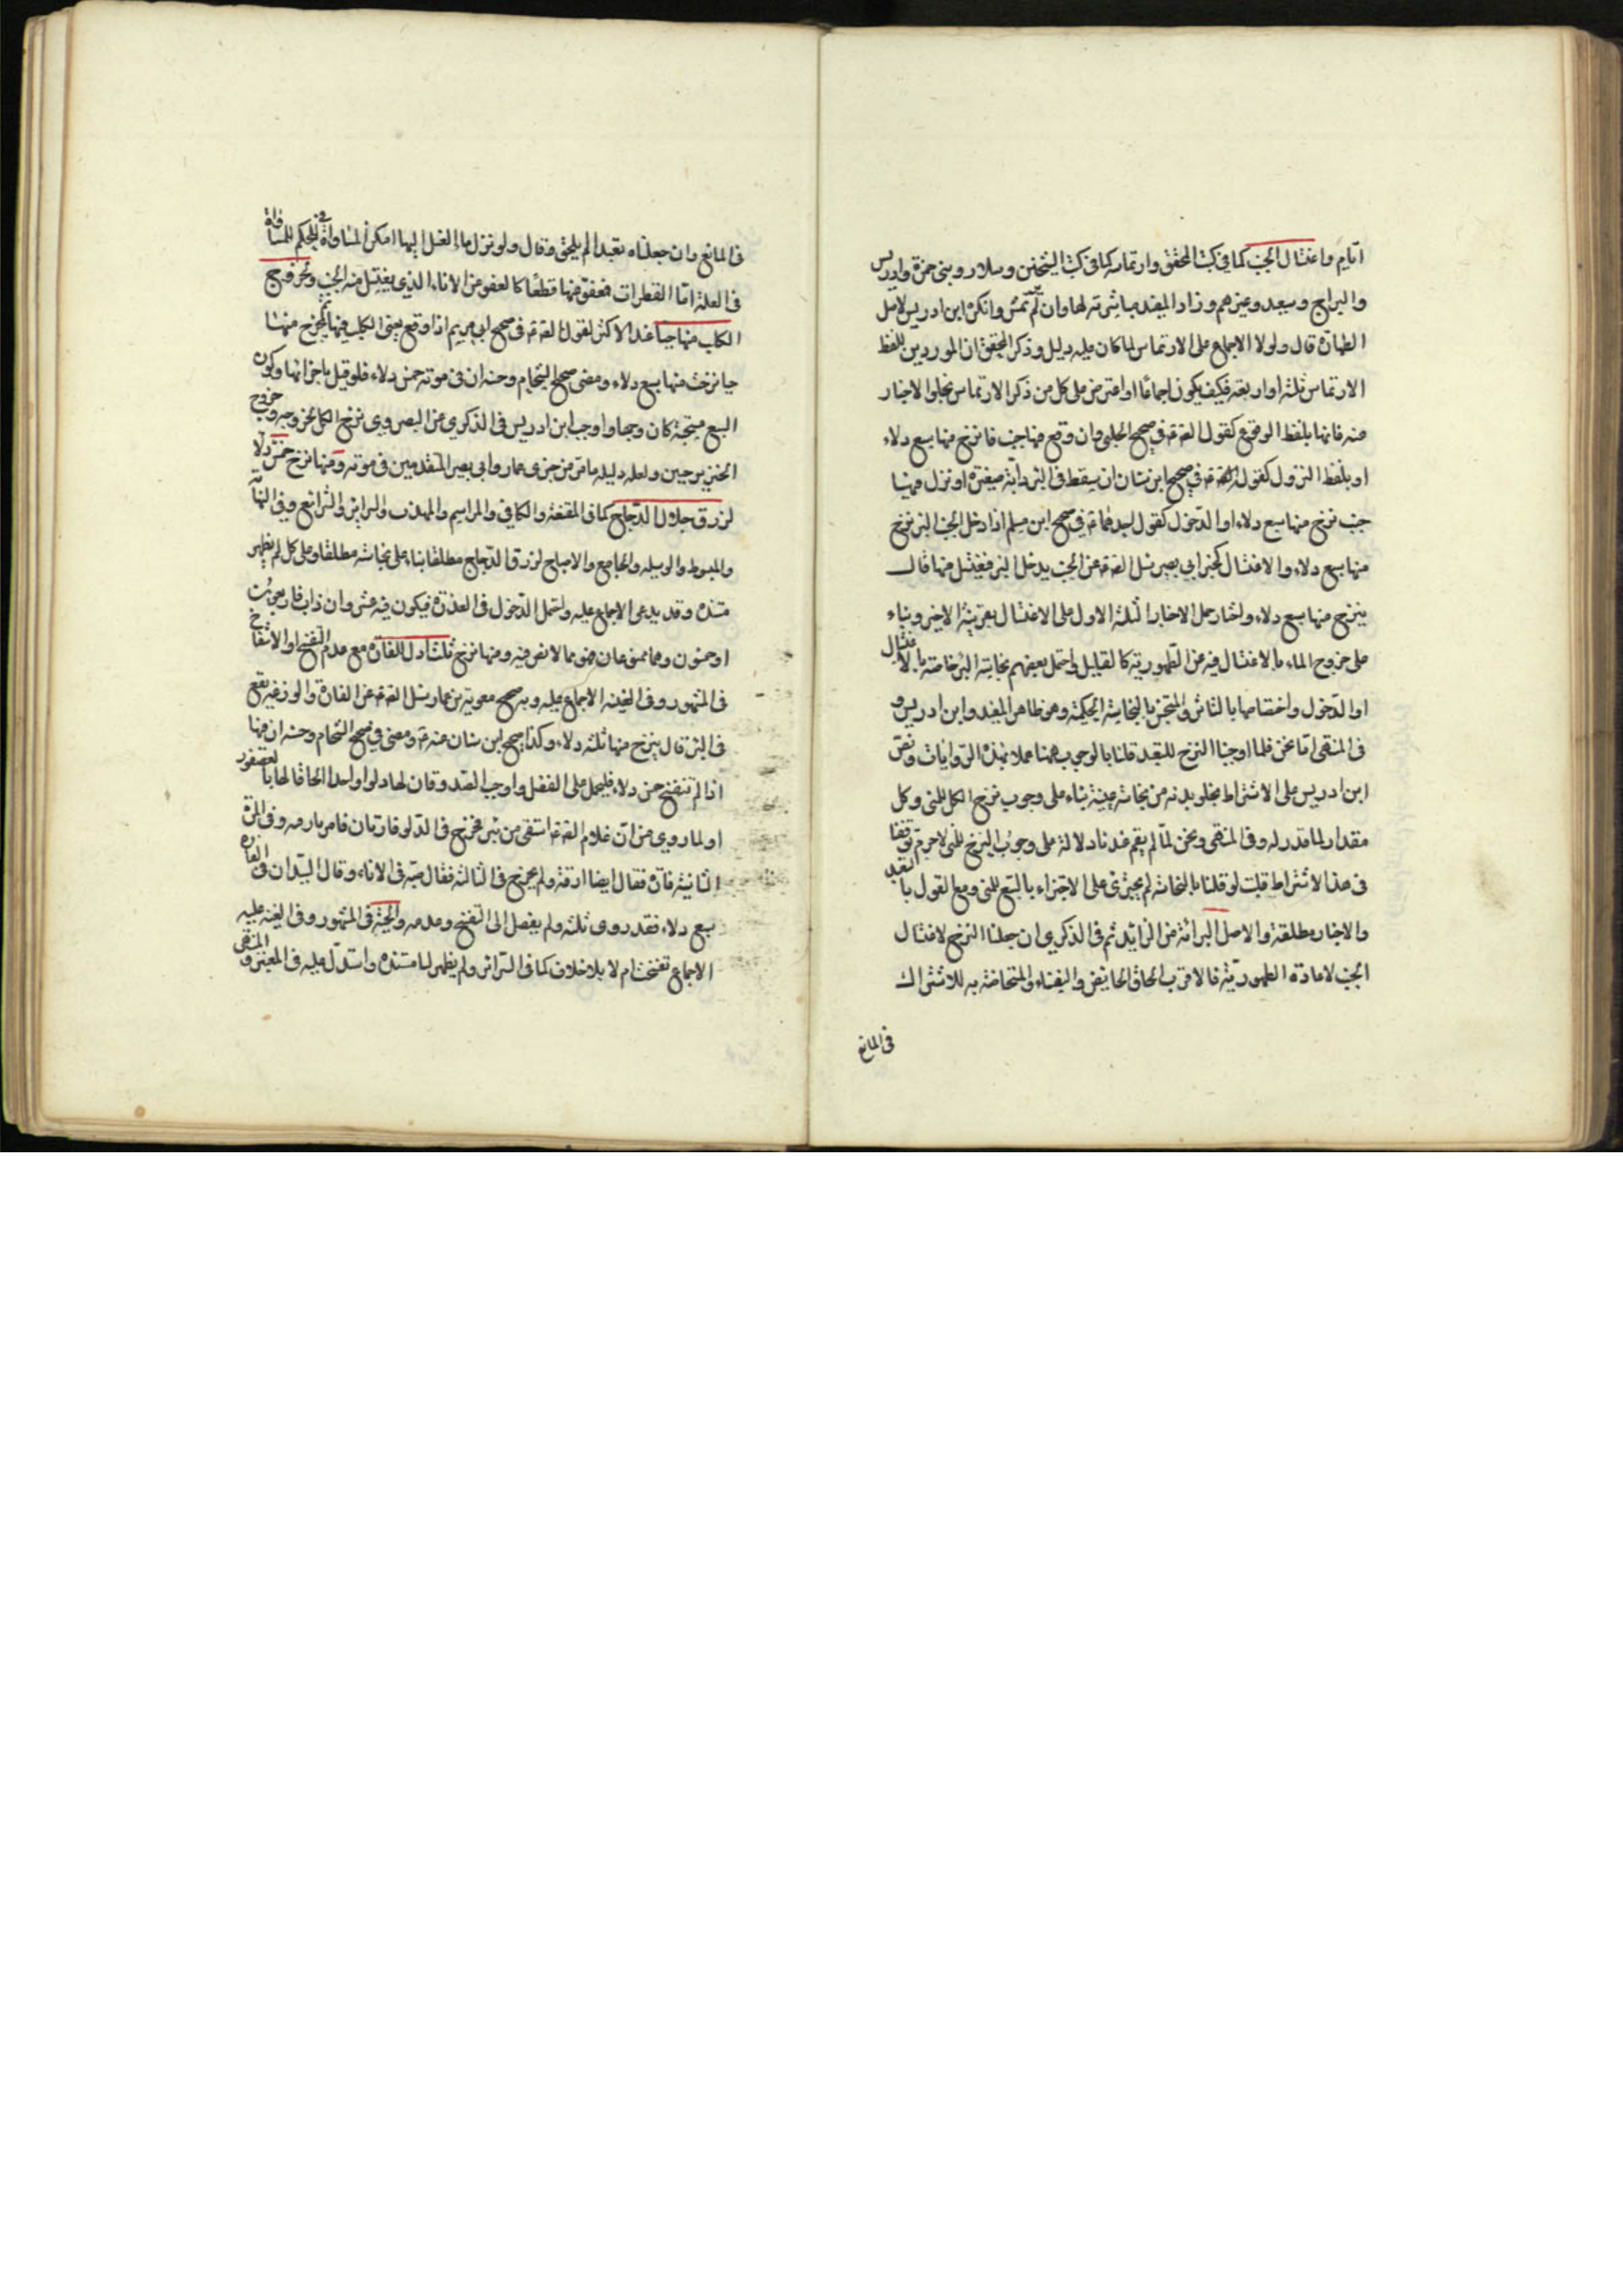 ايام واغتسال الجنب كما في كتب المحقق وارتماسه كما في كتب الشيخين وسلار وبني حمزة وادريس
والبراج وسعيد وغيرهم وزاد المفيد مباشرته لها وان لم يرتمس وانكره ابن ادريس لاصل
الطهارة قال ولولا الاجماع على الارتماس لما كان عليه دليل وذكر المحقق ان الموردين للفظ
الارتماس ثلثة او اربعة فكيف يكون اجماعًا واعترض على كل من ذكر الارتماس بخلو الاخبار
عنه فانها بلفظ الوقوع كقول الصادق ع في صحيح الحلبي وان وقع فيها جنب فانزح منها سبع دلاء
او بلفظ النزول كقول الصادق ع في صحيح ابن سنان ان سقط في البئر دابة صغيرة او نزل فيها
جنب نزح منها سبع دلاء او الدخول كقول احدهما ع في صحيح ابن مسلم اذا دخل الجنب البئر نزح
منها سبع دلاء والاغتسال كخبر ابي بصير سئل الصادق ع عن الجنب يدخل البئر فيغتسل منها قال
ينزح منها سبع دلاء واختار حمل الاخبار الثلثة الاول على الاغتسال بقرينة الاخير وبناء
على خروج الماء بالاغتسال فيه عن الطهورية كالقليل واحتمل بعضهم نجاسة البئر خاصة بالاغتسال
او الدخول واختصاصها بالتاثر والتنجس بالنجاسة الحكمية وهو ظاهر المفيد وابن ادريس و
في المنتهى اما نحن فلما اوجبنا النزح للتعبد قلنا بالوجوب ههنا عملا بهذه الروايات ونص
ابن ادريس على الاشتراط بخلو بدنه من نجاسة عينية بناء على وجوب نزح الكل للمني وكل
مقدار لما قدر له وفي المنتهى ونحن لما لم يقم عندنا دلالة على وجوب النزح للمني لا جرم توقفنا
في هذا الاشتراط قلت لو قلنا بالنجاسة لم يجترئ على الاجتزاء بالسبع للمني ومع القول بالتعبد
والاخبار مطلقة والاصل البرائة من الزائد ثم في الذكرى ان جعلنا النزح لاغتسال
الجنب لاعادة الطهورية فالاقرب الحاق الحائض والنفساء والمستحاضة به للاشتراك
في المانع
في المانع وان جعلناه تعبدا لم يلحق وقال ولو نزل ماء الغسل اليها امكن المساواة في الحكم للمساواة
في العلة اما القطرات فعفو عنها قطعًا كالعفو عن الاناء الذي يغتسل منه الجنب ولخروج
الكلب منها حيا عند الاكثر لقول الصادق ع في صحيح ابي مريم اذا وقع يعني الكلب فيها ثم اخرج منها
حيا نزحت منها سبع دلاء ومضى صحيح الشحام وحسنه ان في موته خمس دلاء فلو قيل باجزائها وكون
السبع مستحبة كان وجها واوجب ابن ادريس في الذكرى عن البصروي نزح الكل لخروجه وخروج
الخنزير حيين ولعله دليله ما مر من خبري عمار وابي بصير المتقدمين في موته ومنها نزح خمس دلاء
لذرق جلال الدجاج كما في المقنعة والكافي والمراسم والمهذب والسرائر والشرائع وفي النهاية
والمبسوط والوسيله والجامع والاصباح لذرق الدجاج مطلقا بناء على نجاسته مطلقا وعلى كل لم يظهر
مستنده وقد يدعى الاجماع عليه واحتمل الدخول في العذرة فيكون فيه عشر وان ذاب فاربعون
او خمسون وهما ممنوعان فهو مما لا نص فيه ومنها نزح ثلث ادل للفأرة مع عدم التفسخ او الانتفاخ
في المشهور وفي الغنية الاجماع عليه وبه صحيح معوية بن عمار سئل الصادق ع عن الفارة والوزغة يقع
في البئر قال ينزح منها ثلثة دلاء وكذا صحيح ابن سنان عنه ع ومضى في صحيح الشحام وحسنه ان فيها
اذا لم تتفسخ خمس دلاء فليحمل على الفضل واوجب الصدوقان لها دلوا واحدا الحاقا لها بالعصفور
او لما روي من ان غلام الصادق ع استقى من بئر فخرج في الدلو فارتان فامر باراقه وفي المرة
الثانية فارة فقال ايضا ارقه ولم يخرج في الثالثة فقال صبه في الاناء وقال السيدان في الفارة
سبع دلاء فقد روى ثلثة ولم يفصل الى التفسخ وعدمه والحية في المشهور وفي الغنية عليه
الاجماع تفسخت ام لا بلا خلاف كما في السرائر ولم يظهر لنا مستنده واستدل عليه في المعتبر والمنتهى